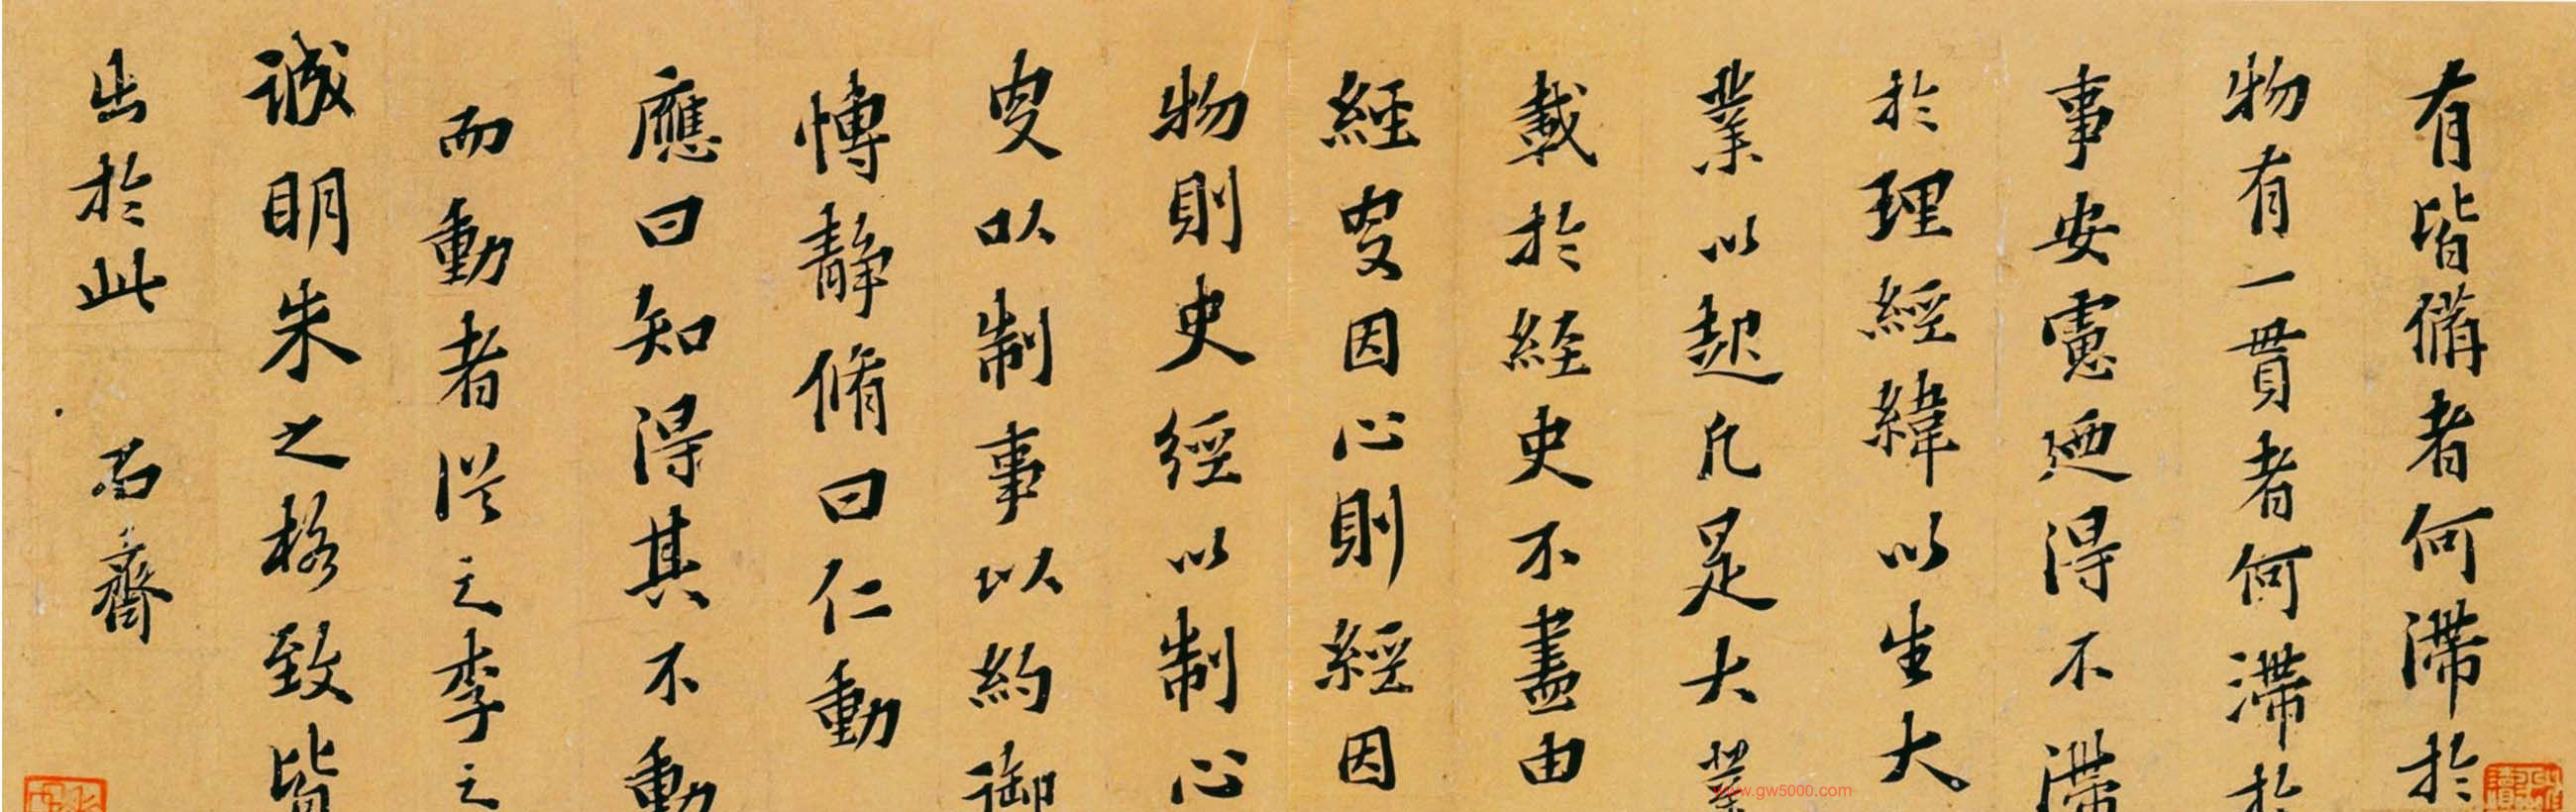 有皆備者何滯於
物有一貫者何滯於
事安慮迺得不滯
於理經緯以生大
業以起凡是大業
載於経史不盡由
經叓因心則經因
物則史經以制心
叓以制事以約御
博静脩曰仁動
應曰知得其不動
而動者従之李之
誠明朱之格致皆
出於此 石齋
www.gw5000.com